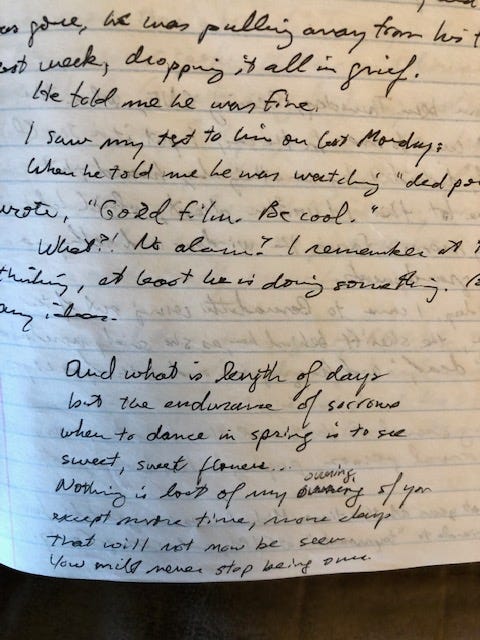 was gone, he was pulling away from his
last week, dropping it all in grief.
He told me he was fine.
I saw my text to him on last Monday:
When he told me he was watching "dead
wrote, "Good film. Be cool."
What?! No alarm? I remember at
thinking, at least he is doing something.
any
And what is length of days
but the endurance of sorrows
when to dance in spring is to see
sweet, sweet flowers...
owning
Nothing is lost of my of you
except more time, more days
that will not now be seen
You will never stop being once.